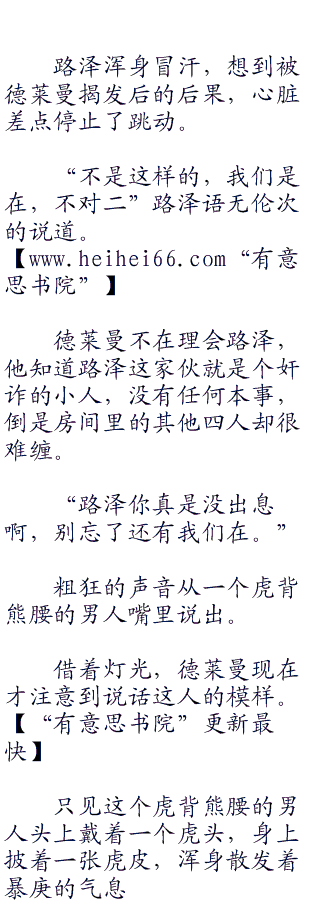 路泽浑身冒汗，想到被
德莱曼揭发后的后果，心脏
差点停止了跳动。
“不是这样的，我们是
在，不对二”路泽语无伦次
的说道。
【www.heihei66.com“有意
思书院”】
德莱曼不在理会路泽，
他知道路泽这家伙就是个奸
诈的小人，没有任何本事，
倒是房间里的其他四人却很
难缠。
“路泽你真是没出息
啊，别忘了还有我们在。”
粗狂的声音从一个虎背
熊腰的男人嘴里说出。
借着灯光，德莱曼现在
才注意到说话这人的模样。
【“有意思书院”更新最
快】
只见这个虎背熊腰的男
人头上戴着一个虎头，身上
披着一张虎皮，浑身散发着
暴庚的气息